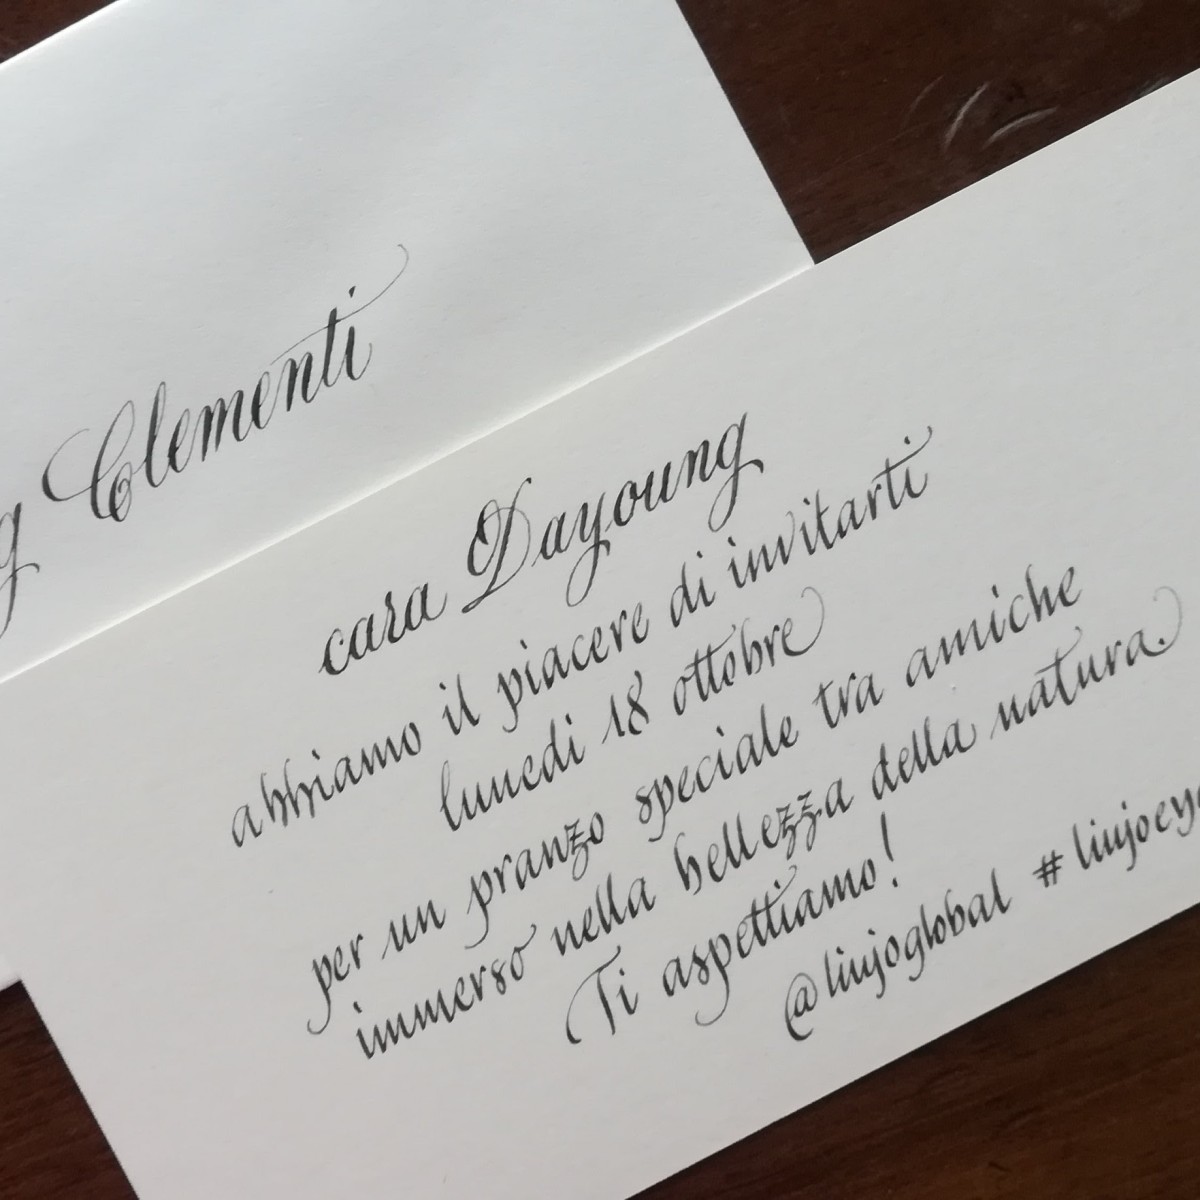 g Clementi
cara Dayoung
abbiamo il piacere di invitarti
lunedi 18 ottobre
per un pranzo speciale tra amiche
immerso nella bellezza della natura.
Ti aspettiamo!
@liujoglobal #liujoeye